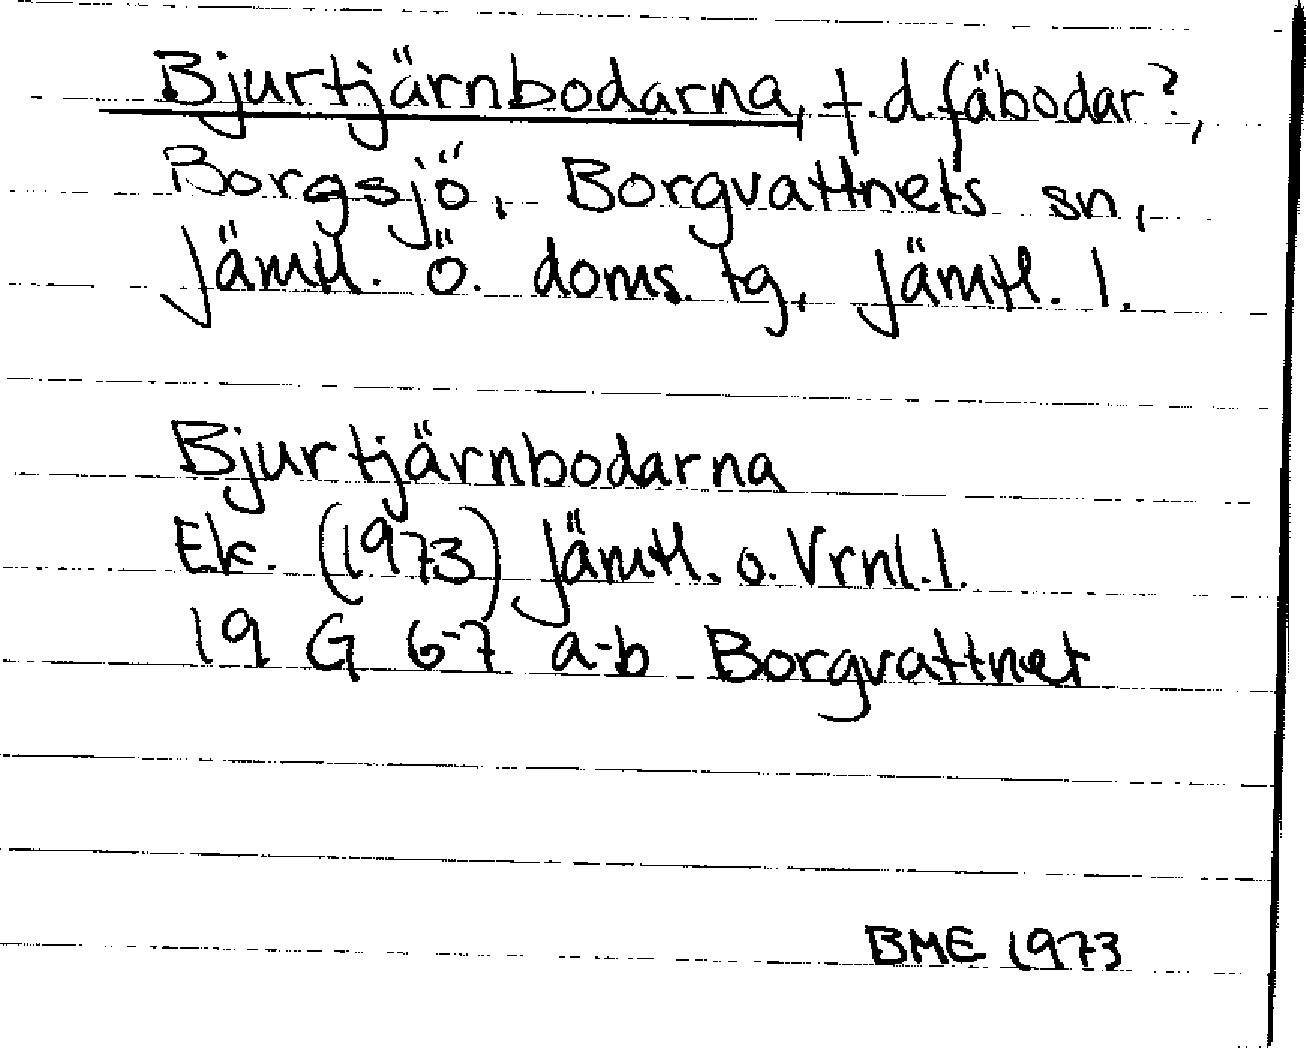 Bjurtjärnbodarna, f.d. fäbodar?,
Borgsjö, Borgvattnets sn,
Jämtl. ö. doms. tg, Jämtl. l.
Bjurtjärnbodarna
Ek. (1973) Jämtl. o. Vrnl. l.
19 G 6-7 a-b Borgvattnet
BME 1973